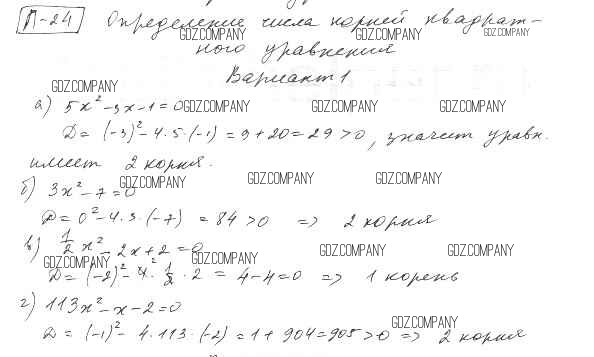 П-24 Определение числа корней квадрат-
ного уравнения
GDZ.COMPANY GDZ.COMPANY GDZ.COMPANY
Вариант 1
GDZ.COMPANY
а) 5x² - 3x - 1 = 0 GDZ.COMPANY GDZ.COMPANY GDZ.COMPANY
D = (-3)² - 4·5·(-1) = 9 + 20 = 29 > 0, значит уравн.
имеет 2 корня.
GDZ.COMPANY GDZ.COMPANY GDZ.COMPANY
б) 3x² - 7 = 0
D = 0² - 4·3·(-7) = 84 > 0 => 2 корня
в) 1/2 x² - 2x + 2 = 0
GDZ.COMPANY GDZ.COMPANY GDZ.COMPANY GDZ.COMPANY
D = (-2)² - 4·1/2·2 = 4 - 4 = 0 => 1 корень
г) 113x² - x - 2 = 0
GDZ.COMPANY
D = (-1)² - 4·113·(-2) = 1 + 904 = 905 > 0 => 2 корня